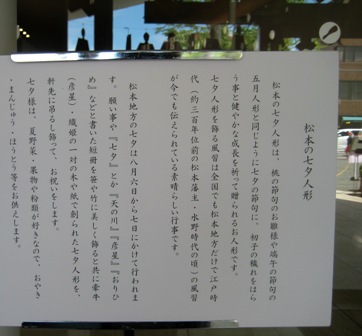 松本の七夕人形
松本の七夕人形は、桃の節句のお雛様や端午の節句の
五月人形と同じように七夕の節句に、初子の穢れをはら
う事と健やかな成長を祈って贈られるお人形です。
七夕人形を飾る風習は全国でも松本地方だけで江戸時
代（約三百年位前の松本藩主・水野時代の頃）の風習
が今でも伝えられている素晴らしい行事です。
松本地方の七夕は八月六日から七日にかけて行われま
す。願い事や『七夕』とか『天の川』『彦星』『おりひ
め』などと書いた短冊を笹や竹に美しく飾ると共に牽牛
（彦星）・織姫の一対の木や紙で創られた七夕人形を、
軒先に吊るし飾って、お祝いをします。
七夕様は、夏野菜・果物や粉類が好きなので、おやき
・まんじゅう・ほうとう等をお供えします。